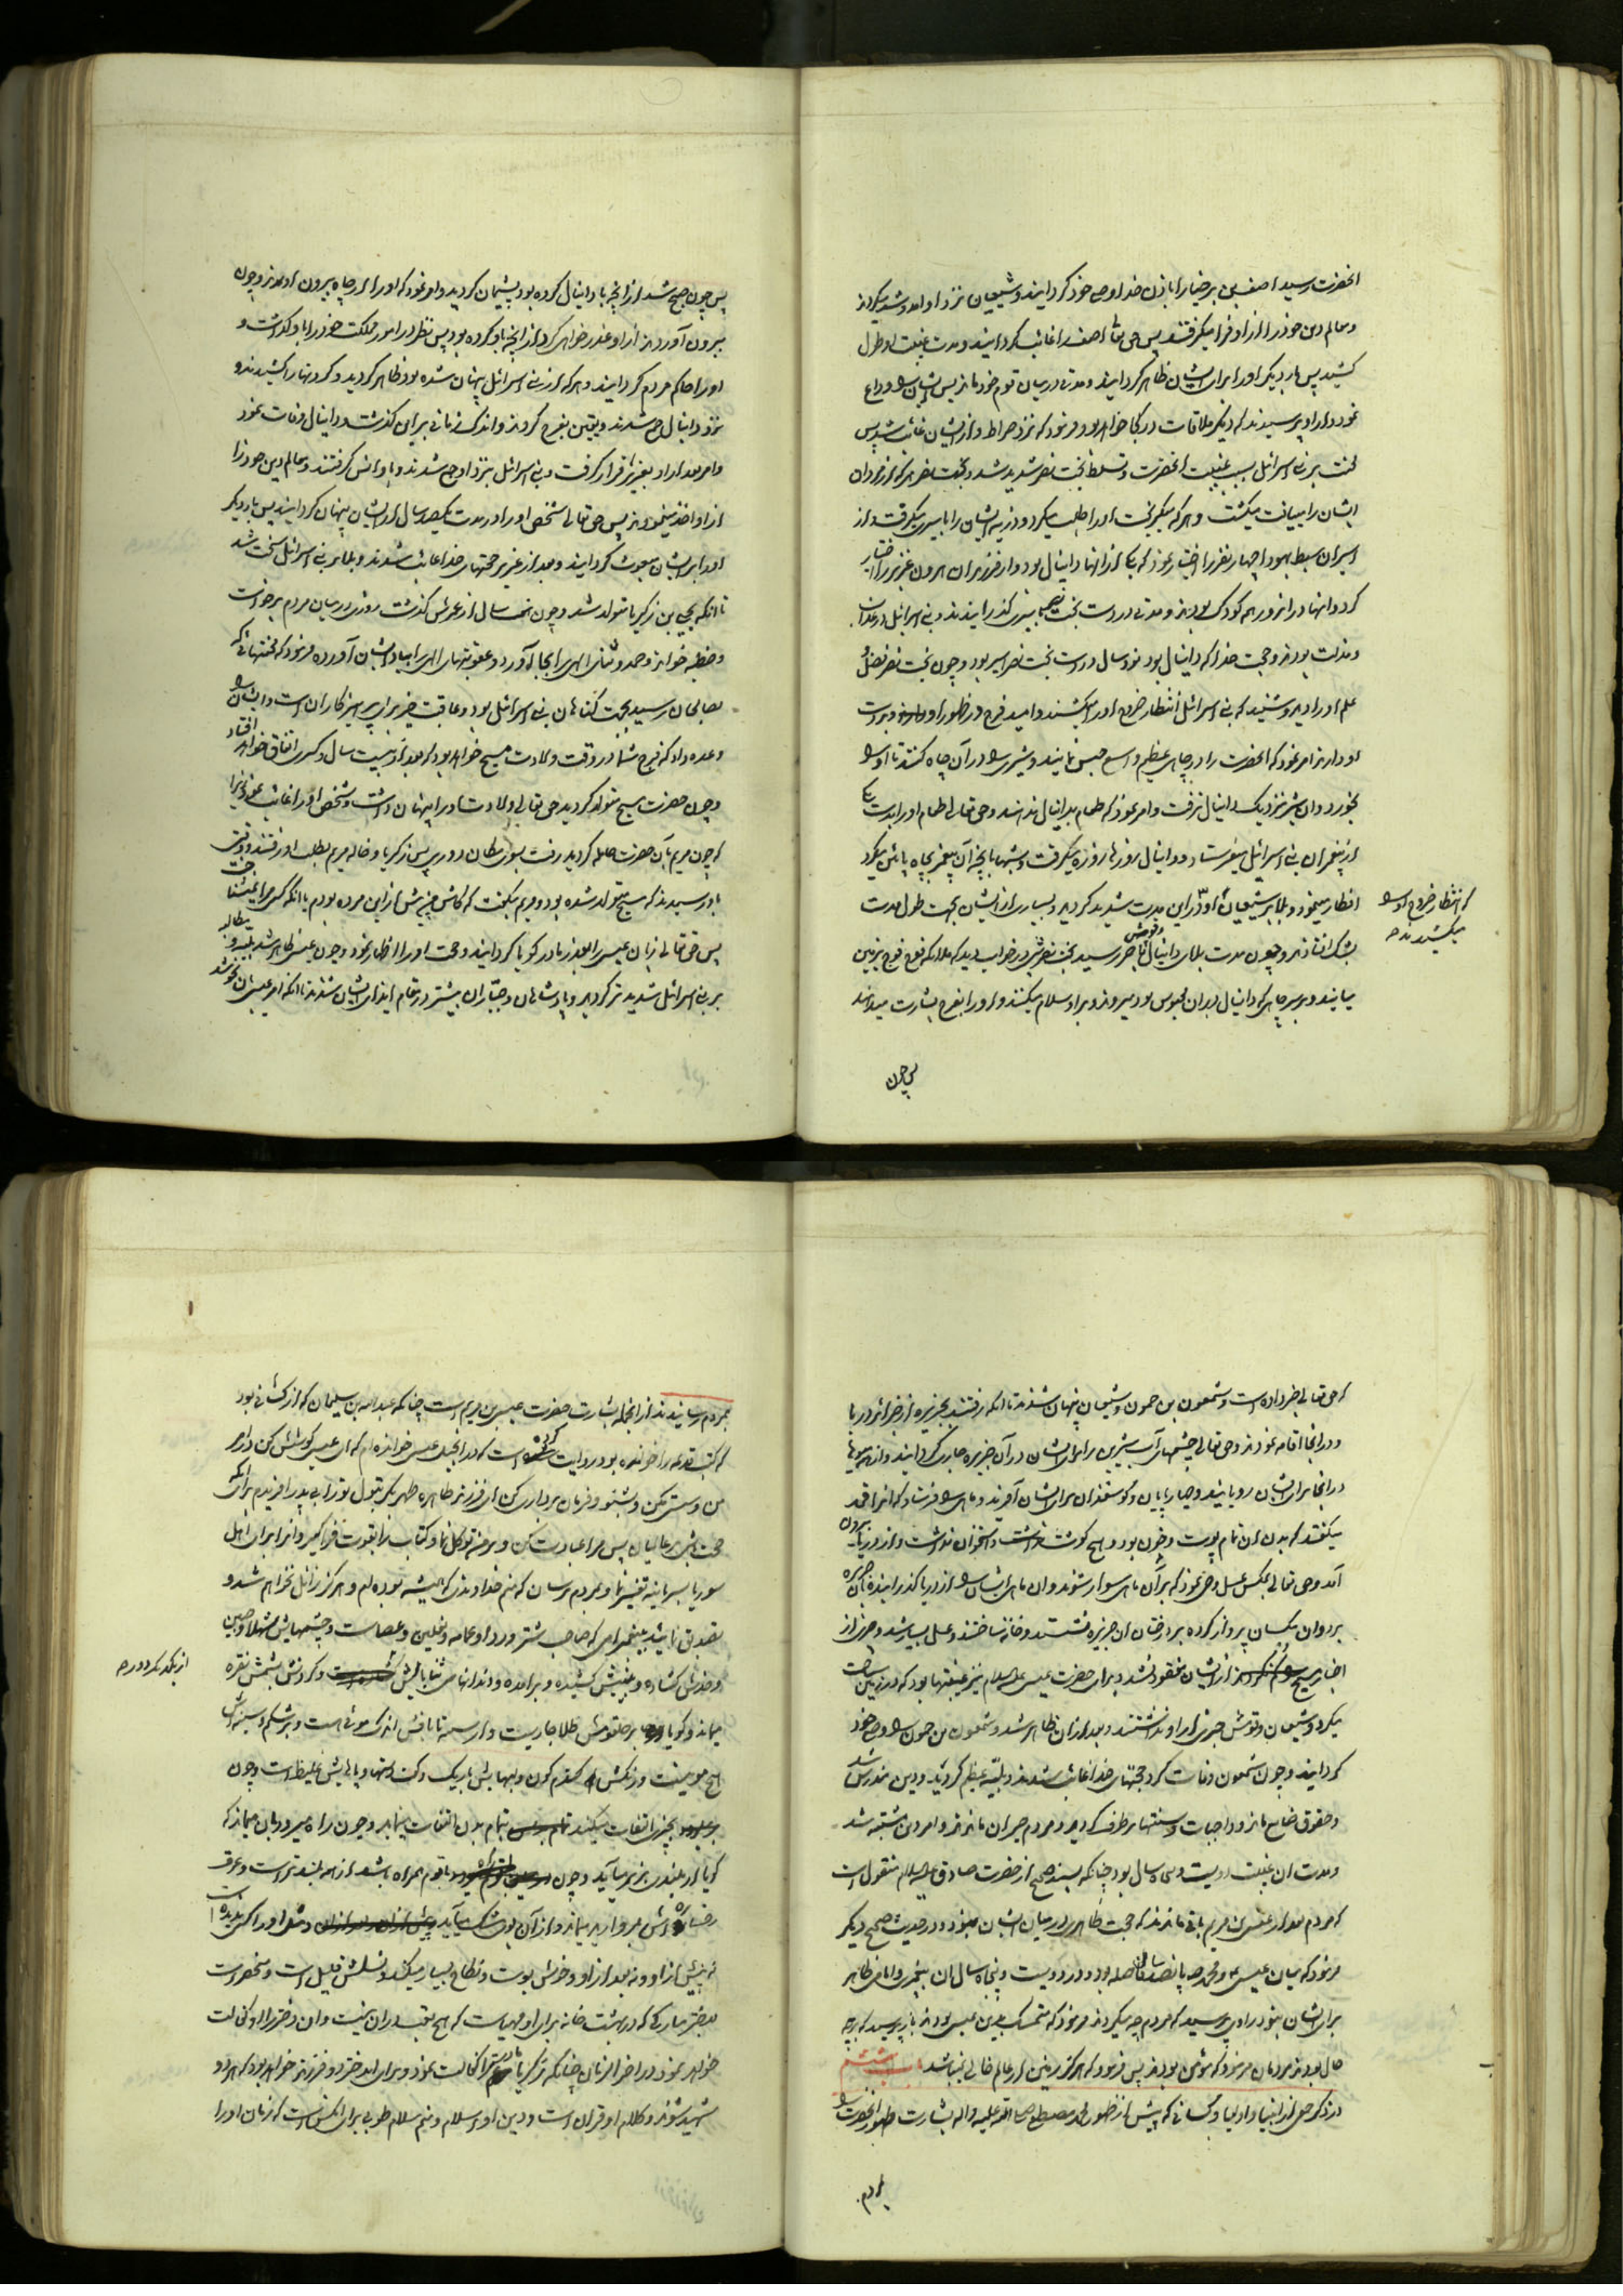 انحضرت رسید اصف بن برخیا را باذن خدا وصی خود گردانید و شیعیان نزد او امد و شد میکردند
و معالم دین خود را از او فرا میگرفتند پس حق تعالی اصف را غائب گردانید و مدت غیبت او طول
کشید پس بار دیگر او را برای ایشان ظاهر گردانید و مدتی در میان قوم خود ماند پس ایشان را وداع
نمود و از او پرسیدند که دیگر ملاقات در کجا خواهد بود فرمود که نزد صراط و از ایشان غائب شد پس
سخت بر بنی اسرائیل بسبب غیبت انحضرت و تسلط بخت نصر شدید شد و بخت نصر هر که از مردان
ایشان را میافت میکشت و هر که میگریخت او را طلب میکرد و ذریه ایشان را باسیری میگرفت و از
اسیران سبط یهودا چهار نفر را اختیار نمود که یکی از انها دانیال بود و از فرزندان هرون عزیر را اختیار
کرد و انها در انروز همه کودک بودند و مدتی در دست بخت نصر باسیری گذرانیدند و بنی اسرائیل در عذاب
و مذلت بودند و حجت خدا که دانیال بود نود سال در دست بخت نصر اسیر بود و چون بخت نصر فضل و
علم او را دید و شنید که بنی اسرائیل انتظار خروج او را میکشند و امید فرج در ظهور او دارند و بر دست
او دارند امر نمود که انحضرت را در چاهی عظیم و واسع حبس نمایند و شیری را در آن چاه کنند تا او را
بخورد و ان شیر نزدیک دانیال نرفت و امر نمود که طعام بدانیال ندهند و حق تعالی طعام او را بدست یکی
از پیغمبران بنی اسرائیل میفرستاد و دانیال روزها روزه میگرفت و شبها بانچه آن پیغمبر بچاه پائین میکرد
افطار مینمود و بلا بر شیعیان او در این مدت شدید گردید و بسیاری از ایشان بجهت طول مدت
که انتظار خروج او را
میکشیدند
بشک افتادند و چون مدت بلای دانیال و قومش باخر رسید بخت نصر شبی در خواب دید که ملائکه فوج فوج بزمین
میایند و بر سر چاهی که دانیال در ان محبوس بود میروند و بر او سلام میکنند و او را بفرج بشارت میدهند
پس چون
پس چون صبح شد از انچه با دانیال کرده بود پشیمان گردید و امر نمود که او را از چاه بیرون اوردند و چون
بیرون آوردند از او عذر خواهی کرد از انچه باو کرده بود پس نظر در امور مملکت خود را باو گذاشت و
او را حاکم مردم گردانید و هر که از بنی اسرائیل پنهان شده بود ظاهر گردید و گردنها را کشیدند و
نزد دانیال جمع شدند و یقین بفرج کردند و اندک زمانی بر این گذشت و دانیال وفات نمود
و امر بعد از او بعزیر قرار گرفت و بنی اسرائیل بنزد او جمع شدند و باو انس گرفتند و معالم دین خود را
از او اخذ مینمودند پس حق تعالی شخص او را در مدت یکصد سال از ایشان پنهان گردانید پس بار دیگر
او را بر ایشان مبعوث گردانید و بعد از عزیر حجتهای خدا غائب شدند و بلا بر بنی اسرائیل سخت شد
تا انکه یحیی بن زکریا متولد شد و چون نه سال از عمرش گذشت روزی در میان مردم برخواست
و خطبه خواند و حمد و ثنای الهی را بجا آورد و عقوبتهای الهی را بیاد ایشان آورده فرمود که محنتهائی که
بصالحان رسید بجهت گناهان بنی اسرائیل بود و عاقبت خیر برای پرهیزکاران است و ایشان را
وعده داد که فرج شما در وقت ولادت مسیح خواهد بود که بعد از بیست سال و کسری اتفاق خواهد افتاد
و چون حضرت مسیح متولد گردید حق تعالی ولادت او را پنهان داشت و شخص او را غائب نمود زیرا
که چون مریم بآن حضرت حامله گردید رفت بسوی مکان دور پس زکریا و خاله مریم بطلب او رفتند و وقتی
باو رسیدند که مسیح متولد شده بود و مریم میگفت که کاش من پیش از این مرده بودم تا انکه کسی مرا نمی‌شناخت
پس حق تعالی زبان عیسی را بعذر مادر گویا گردانید و حجت او را اظهار نمود و چون عیسی ظاهر شد بلیه و طلب
بر بنی اسرائیل شدیدتر گردید و پادشاهان و جباران بیشتر در مقام ایذای ایشان شدند تا انکه امر عیسی ان نحو شد
که حق تعالی خبر داده است و شمعون بن حمون و شیعیان پنهان شدند تا انکه رفتند بجزیره از جزائر دریا
و در انجا اقامه نمودند و حق تعالی چشمهای آب شیرین برای ایشان در آن جزیره جاری گردانید و از همه میوها
در انجا برای ایشان رویانید و چهارپایان و گوسفندان برای ایشان آفرید و ماهی را فرستاد که انرا قمد
میگفتند که بدن ان تمام پوست و خون بود و هیچ گوشت نداشت و استخوان نداشت و از دریا بیرون
آمد و حق تعالی بمگس عسل وحی نمود که بر آن ماهی سوار شوند و ان ماهی ایشان را از دریا گذرانیده بآن جزیره
برد و ان مگسان پرواز کرده بر درختان ان جزیره نشستند و خانه ساختند و عسل بسیار شد و خبری از
اخبار مسیح از ایشان مفقود نشد و برای حضرت عیسی علیه السلام نیز غیبتها بود که در زمین سیاحت
میکرد و شیعیان و قومش خبری از او نداشتند و بعد از ان ظاهر شد و شمعون بن حمون را وصی خود
گردانید و چون شمعون وفات کرد حجتهای خدا غائب شدند و بلیه عظیم گردید و دین مندرس شد
و حقوق ضایع ماند و واجبات و سنتها برطرف گردید و مردم حیران ماندند و امر دین مشتبه شد
و مدت ان غیبت دویست و پنجاه سال بود چنانکه بسند صحیح از حضرت صادق علیه السلام منقول است
که مردم بعد از عیسی بن مریم باقی ماندند که حجت ظاهری در میان ایشان نبود و در حدیث صحیح دیگر
فرمود که میان عیسی و محمد ص پانصد سال فاصله بود و در دویست و پنجاه سال ان پیغمبری و امامی ظاهر
برای ایشان نبود راوی پرسید که مردم چه میکردند فرمود که متمسک بدین عیسی بودند باز پرسید که بر چه
حال بودند مردمان فرمود که مؤمن بودند پس فرمود که هرگز زمین از عالم خالی نمیباشد باب ششم
در ذکر جمعی از انبیا و اولیا و کسانی که پیش از ظهور محمد مصطفی صلی الله علیه و اله بشارت ظهور انحضرت را
بمردم
بمردم رسانیدند از انجمله بشارت حضرت عیسی بن مریم است چنانکه عبدالله بن سلیمان که از کسانی بود
که کتب قدیمه را خوانده بود روایت کرده است که در انجیل عیسی خوانده‌ام که ای عیسی کوشش کن در امر
من و سستی مکن و بشنو و فرمان برداری کن ای فرزند طاهره طهر بکر بتول تو را بی پدر افریدم برای انکه
حجت باشی بر عالمیان پس مرا عبادت کن و بر من توکل نما و کتاب را بقوت فرا گیر و انرا برای اهل
سوریا بسریانیه تفسیر نما و بمردم برسان که منم خداوندی که همیشه بوده‌ام و هرگز زائل نخواهم شد و
تصدیق نمائید پیغمبر امی که صاحب شتر و ردا و عمامه و نعلین و عصاست و چشمهایش شهلا و جبین
و خدش گشاده و بینیش کشیده و برامده و دندانهای ثنایایش گشاده است و گردنش بشمش نقره
از یکدیگر دور
میماند و گویا بر حلقومش طلا جاریست و از سینه تا نافش اندک موئی است و بر شکم و سینه‌اش
هیچ مو نیست و رنگش گندم گون و لبهایش باریک و کف دستها و پاهایش غلیظ است و چون
بچیزی التفات میکند بتمام بدن التفات مینماید و چون راه میرود چنان میماند که
گویا از بلندی بزیر میآید و چون با قوم همراه باشد از همه بلندتر است و عرق
رخساره‌اش بمروارید میماند و از آن بوی مشک میآید و مثل او را کسی ندیده است
نه پیش از او و نه بعد از او و خوش بوست و نکاح بسیار میکند و نسلش قلیل است و منحصر است
بدختر مبارکی که در بهشت خانه برای او مهیاست که هیچ تعب در ان نیست و ان دختر را او کفالت
خواهد نمود در اخر الزمان چنانکه زکریا مادر ترا کفالت نمود و برای ان دختر دو فرزند خواهد بود که هر دو
شهید شوند و کلام او قرآن است و دین او اسلام و منم سلام طوبی برای انکس است که زمان او را